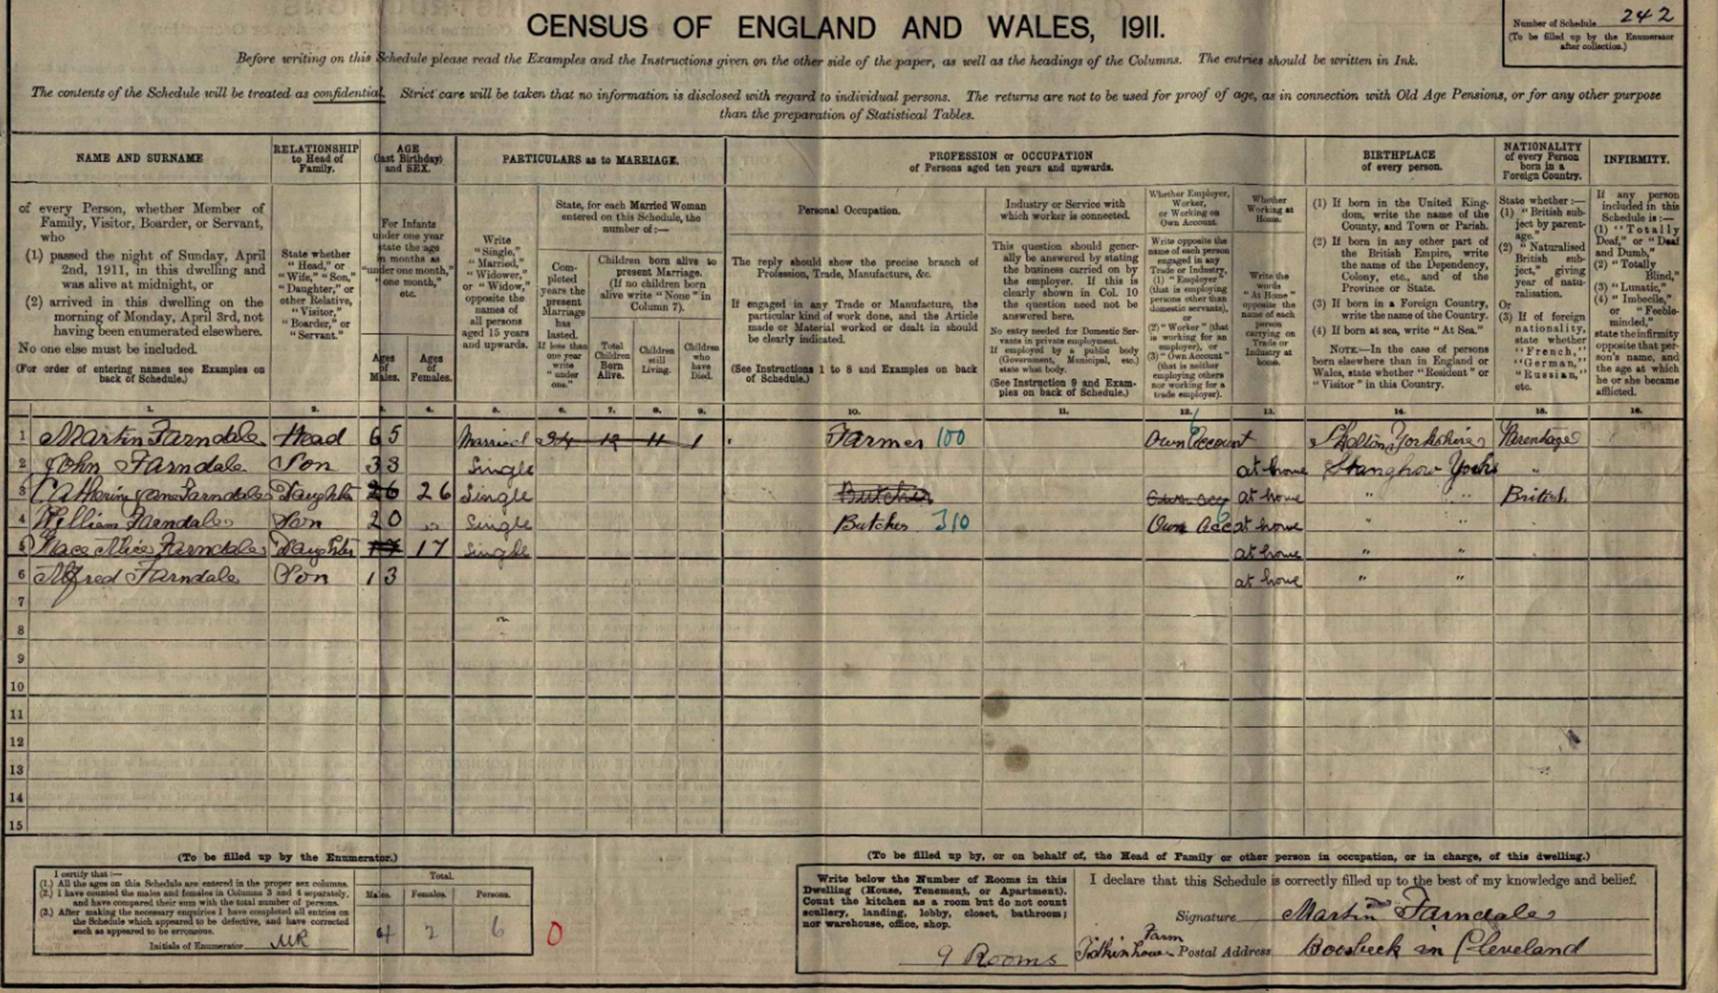 CENSUS OF ENGLAND AND WALES, 1911.
Number of Schedule 242
(To be filled up by the Enumerator after collection.)
Before writing on this Schedule please read the Examples and the Instructions given on the other side of the paper, as well as the headings of the Columns. The entries should be written in Ink.
The contents of the Schedule will be treated as confidential. Strict care will be taken that no information is disclosed with regard to individual persons. The returns are not to be used for proof of age, as in connection with Old Age Pensions, or for any other purpose
than the preparation of Statistical Tables.
NAME AND SURNAME
of every Person, whether Member of
Family, Visitor, Boarder, or Servant,
who
(1) passed the night of Sunday, April
2nd, 1911, in this dwelling and
was alive at midnight, or
(2) arrived in this dwelling on the
morning of Monday, April 3rd, not
having been enumerated elsewhere.
No one else must be included.
(For order of entering names see Examples on
back of Schedule.)
RELATIONSHIP
to Head of
Family.
State whether
"Head," or
"Wife," "Son,"
"Daughter," or
other Relative,
"Visitor,"
"Boarder," or
"Servant."
AGE
(last Birthday)
and SEX.
For Infants
under one year
state the age
in months as
"under one month,"
"one month,"
etc.
Ages of Males.
Ages of Females.
PARTICULARS as to MARRIAGE.
Write
"Single,"
"Married,"
"Widower,"
or "Widow,"
opposite the
names of
all persons
aged 15 years
and upwards.
State, for each Married Woman
entered on this Schedule, the
number of:—
Completed years the present Marriage has lasted.
If less than one year write "under one."
Children born alive to
present Marriage.
(If no children born
alive write "None" in
Column 7).
Total Children Born Alive.
Children still Living.
Children who have Died.
PROFESSION or OCCUPATION
of Persons aged ten years and upwards.
Personal Occupation.
The reply should show the precise branch of
Profession, Trade, Manufacture, &c.
If engaged in any Trade or Manufacture, the
particular kind of work done, and the Article
made or Material worked or dealt in should
be clearly indicated.
(See Instructions 1 to 8 and Examples on back
of Schedule.)
Industry or Service with
which worker is connected.
This question should gener-
ally be answered by stating
the business carried on by
the employer. If this is
clearly shown in Col. 10
the question need not be
answered here.
No entry needed for Domestic Ser-
vants in private employment.
If employed by a public body
(Government, Municipal, etc.)
state what body.
(See Instruction 9 and Exam-
ples on back of Schedule.)
Whether Employer,
Worker,
or Working on
Own Account.
Write opposite the
name of each person
engaged in any
Trade or Industry,
(1) "Employer"
(that is employing
persons other than
domestic servants),
or
(2) "Worker" (that
is working for an
employer), or
(3) "Own Account"
(that is neither
employing others
nor working for a
trade employer).
Whether
Working at
Home.
Write the
words
"At Home"
opposite the
name of each
person
carrying on
Trade or
Industry at
home.
BIRTHPLACE
of every person.
(1) If born in the United King-
dom, write the name of the
County, and Town or Parish.
(2) If born in any other part of
the British Empire, write
the name of the Dependency,
Colony, etc., and of the
Province or State.
(3) If born in a Foreign Country,
write the name of the Country.
(4) If born at sea, write "At Sea."
NOTE.—In the case of persons
born elsewhere than in England or
Wales, state whether "Resident" or
"Visitor" in this Country.
NATIONALITY
of every Person
born in a
Foreign Country.
State whether:—
(1) "British sub-
ject by parent-
age,"
(2) "Naturalised
British sub-
ject," giving
year of natu-
ralisation.
Or
(3) If of foreign
nationality,
state whether
"French,"
"German,"
"Russian,"
etc.
INFIRMITY.
If any person
included in this
Schedule is:—
(1) "Totally
Deaf," or "Deaf
and Dumb,"
(2) "Totally
Blind,"
(3) "Lunatic,"
(4) "Imbecile,"
or "Feeble-
minded,"
state the infirmity
opposite that per-
son's name, and
the age at which
he or she became
afflicted.
1. 2. 3. 4. 5. 6. 7. 8. 9. 10. 11. 12. 13. 14. 15. 16.
1 Martin Farndale Head 65 Married 34 12 11 1 Farmer 100 Own Account Skelton Yorkshire Parentage
2 John Farndale Son 33 Single at home Stanghow Yorks "
3 Catherine Jane Farndale Daughter 26 26 Single Butcher Own acc at home " " British
4 William Farndale Son 20 Single Butcher 310 Own Acc at home " "
5 Grace Alice Farndale Daughter 17 17 Single at home " "
6 Alfred Farndale Son 13 at home " "
7
8
9
10
11
12
13
14
15
(To be filled up by the Enumerator.)
I certify that:—
(1.) All the ages on this Schedule are entered in the proper sex columns.
(2.) I have counted the males and females in Columns 3 and 4 separately,
and have compared their sum with the total number of persons.
(3.) After making the necessary enquiries I have completed all entries on
the Schedule which appeared to be defective, and have corrected
such as appeared to be erroneous.
Initials of Enumerator MR
Total.
Males. Females. Persons.
4 2 6
0
(To be filled up by, or on behalf of, the Head of Family or other person in occupation, or in charge, of this dwelling.)
Write below the Number of Rooms in this
Dwelling (House, Tenement, or Apartment).
Count the kitchen as a room but do not count
scullery, landing, lobby, closet, bathroom;
nor warehouse, office, shop.
9 Rooms
I declare that this Schedule is correctly filled up to the best of my knowledge and belief.
Signature Martin Farndale
Tidkinhowe Farm Postal Address Boosbeck in Cleveland